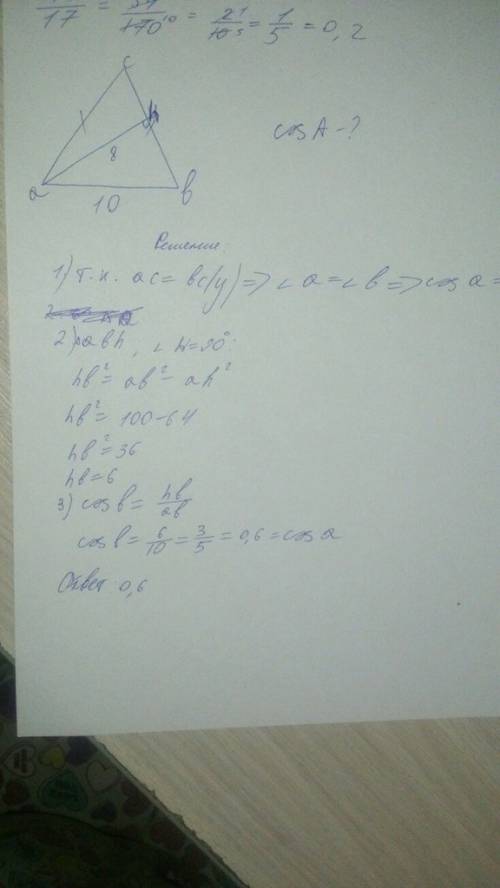 17 = 170 10 = 21 / 10 5 = 1/5 = 0,2
c
h
8
cos A - ?
a
b
10
Решение:
1) т.к. ac = bc(у) => ∠a = ∠b => cos a =
2) abh, ∠h=90°:
hb² = ab² - ah²
hb² = 100-64
hb² = 36
hb = 6
3) cos b = hb/ab
cos b = 6/10 = 3/5 = 0,6 = cos a
Ответ: 0,6